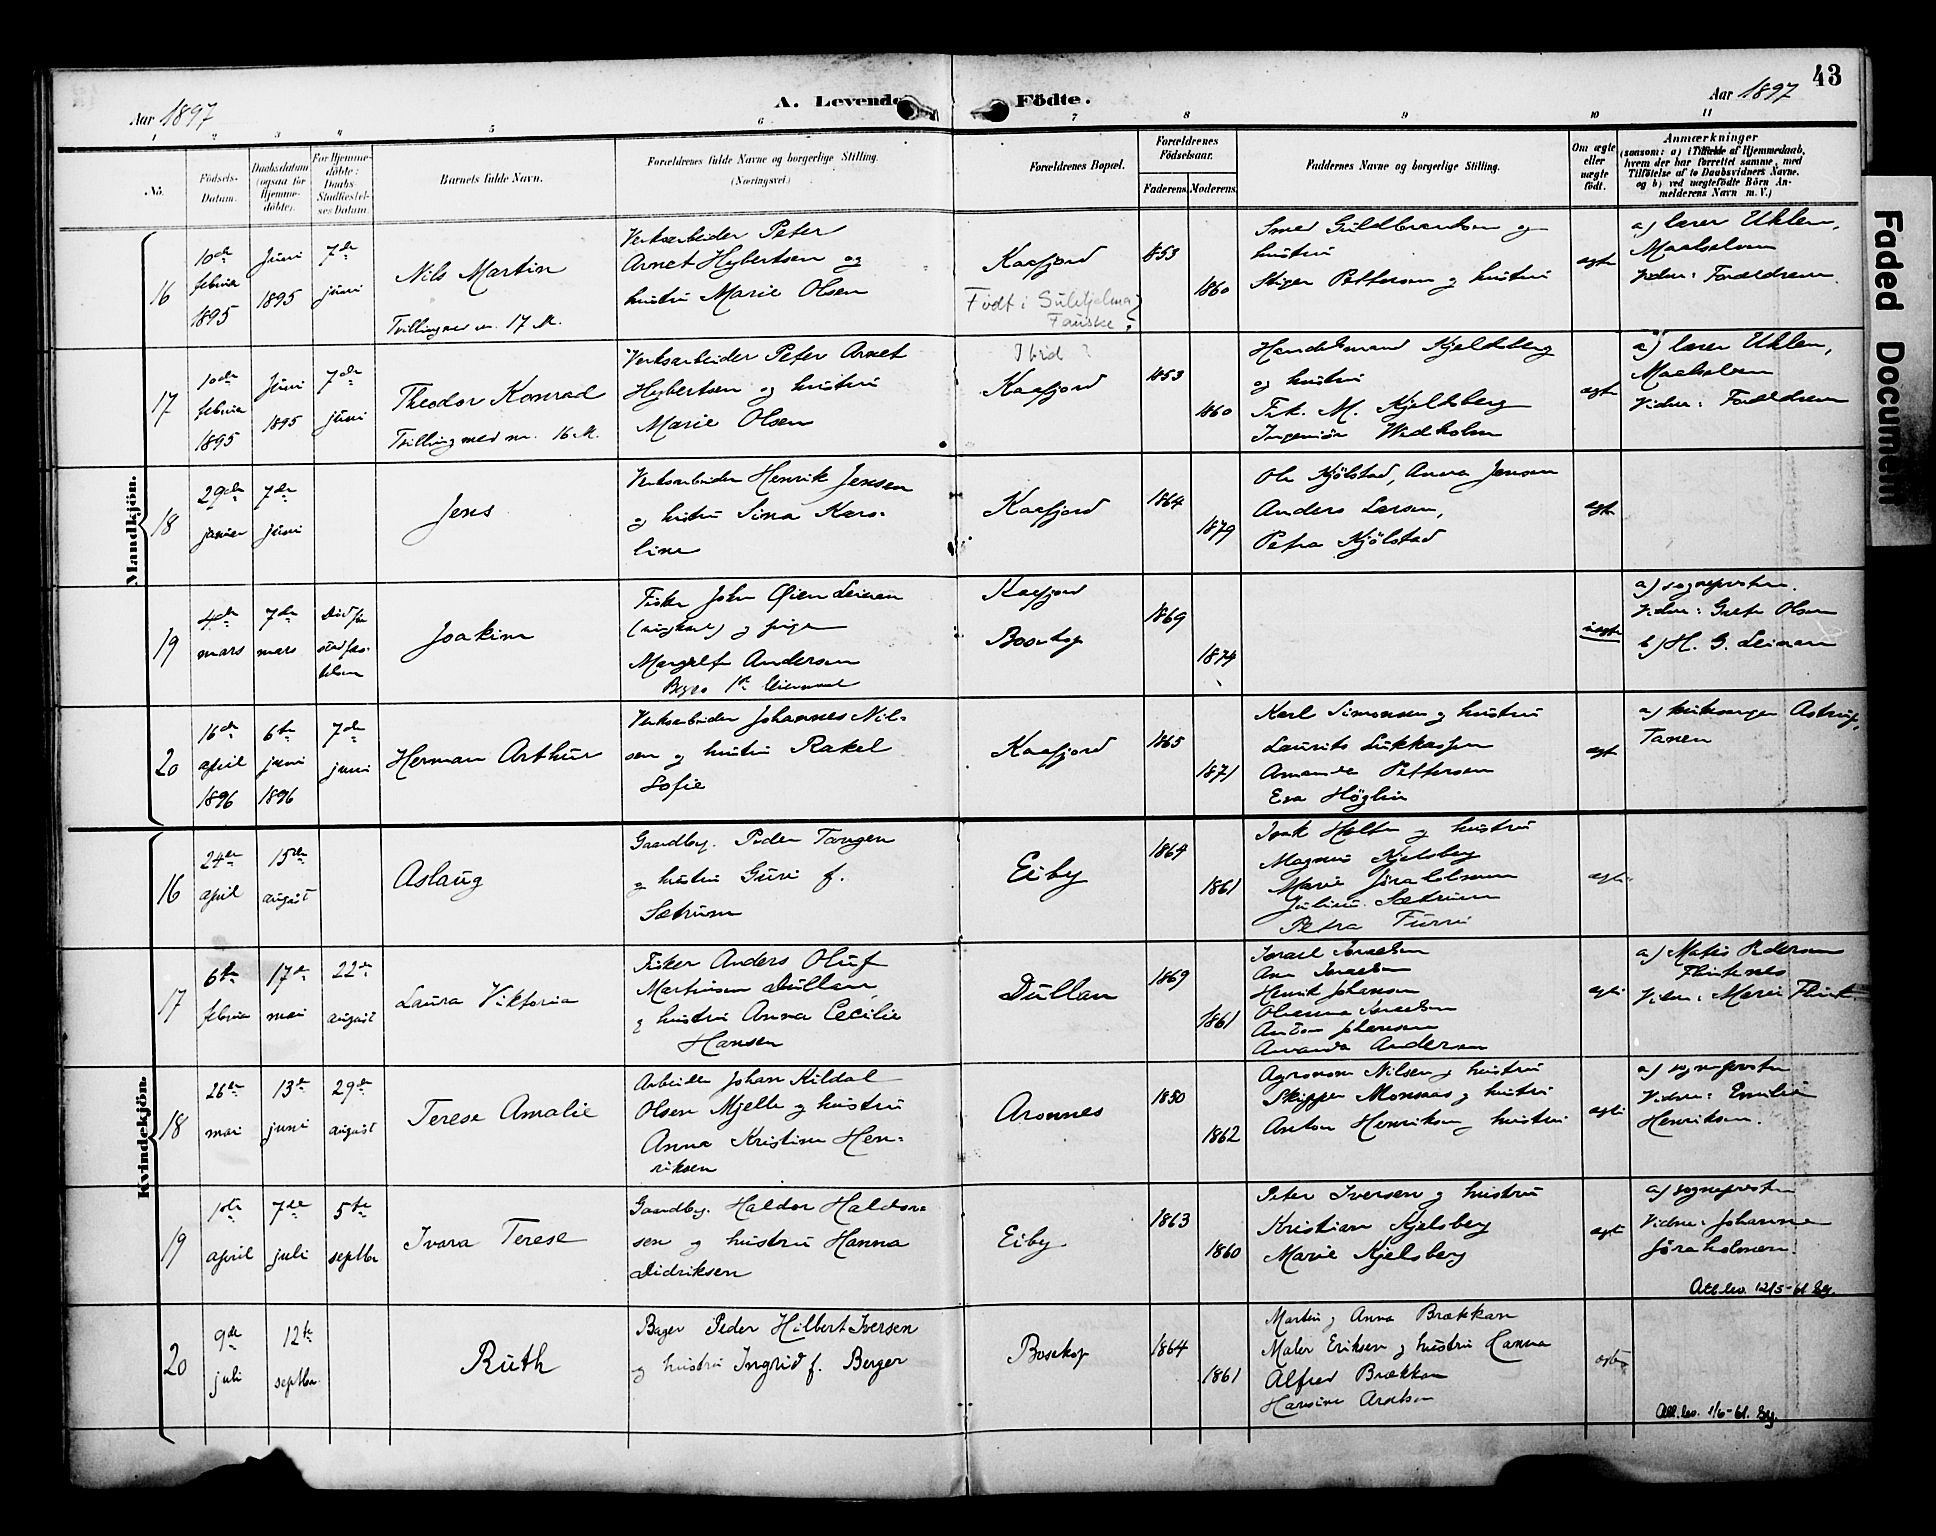 43
Aar 1897
A. Levende Födte.
Aar 1897
1 2 3 4 5 6 7 8 9 10 11
No.
Födsels-
Datum.
Daabsdatum
(ogsaa for
Hjemme-
döbte).
For Hjemme-
döbte:
Daabs
Stadfæstel-
ses Datum
Barnets fulde Navn.
Forældrenes fulde Navne og borgerlige Stilling.
(Næringsvei.)
Forældrenes Bopæl.
Forældrenes
Födselsaar.
Faderens. Moderens.
Faddernes Navne og borgerlige Stilling.
Om ægte
eller
uægte
født.
Anmærkninger
(saasom: a) i Tilfælde af Hjemmedaab,
hvem der har forrettet samme, med
Tilföielse af to Daabsvidners Navne.
og b) ved uægtefødte Börn An-
melderens Navn m. V.)
Mandkjön.
16
10de
februar
1895
Juni
1895
7de
juni
Nils Martin
Tvilling med n. 17 M.
Verksarbeider Peter
Arnet Hybertsen og
hustru Marie Olsen
Kaafjord
Født i Sulitjelma
Fauske?
1853
1860
Smed Guldbrandsen og
hustru
Stiger Pettersen og hustru
ægte
a) lærer Uhlen,
Maalselven
Vidner: Forældrene
17
10de
februar
1895
Juni
1895
7de
juni
Theodor Konrad
Tvilling med nr. 16 M.
Verksarbeider Peter Arnet
Hybertsen og hustru
Marie Olsen
Ibid?
Kaafjord
1853
1860
Handelsmand Kjeldsberg
og hustru
Frk. M. Kjeldsberg
Ingeniör Wedholm
ægte
a) lærer Uhlen,
Maalselven
Vidner: Forældrene
18
29de
januar
7de
juni
Jens
Verksarbeider Henrik Jensen
og hustru Sina Karo-
line
Kaafjord
1864
1879
Ole Kjölstad, Anna Jensen
Anders Larsen,
Petra Kjölstad
ægte
19
4de
mars
7de
mars
Joakim
Fisker John Øien Leinan
(ungkarl) og pige
Margrete Andersen
Kaafjord
Bosekop
1869
1874
uægte
a) sognepresten.
Vidner: Grete Olsen
b) H. G. Leinan
20
16de
april
1896
6te
juni
1896
7de
juni
Herman Arthur
Verksarbeider Johannes Nil-
sen og hustru Rakel
Sofie
Kaafjord
1865
1871
Karl Simonsen og hustru
Laurits Lukkassen
Amanda Pettersen
Eva Höglin
ægte
a) kirkesanger Astrup,
Tanen
Kvindekjön.
16
24de
april
15de
august
Aslaug
Gaardbr. Peder Tangen
og hustru Guri f.
Sætrum
Eiby
1864
1861
Isak Holten og hustru
Magnus Kjelsberg
Marie Jöraholmen
Julius Sætrum
Petra Furu
ægte
17
6te
februar
17de
mai
22de
august
Laura Viktoria
Fisker Anders Oluf
Martinsen Dullan,
og hustru Anna Cecilie
Hansen
Dullan
1869
1861
Israel Israelsen
Ane Israelsen
Henrik Johansen
Oleanna Israelsen
Anton Johansen
Amanda Andersen
ægte
a) Matis Pedersen
Flintenes
Vidn: Marie Flint
18
26de
mai
13de
juni
29de
august
Terese Amalie
Arbeider Johan Kildal
Olsen Mjelle og hustru
Anna Kristine Hen-
riksen
Aronnes
1850
1862
Agronom Nilsen og hustru
Skipper Monsaas og hustru
Anton Henriksen og hustru
ægte
a) sognepresten
Vidner: Emilie
Henriksen.
19
1ste
april
7de
juli
5te
septbr
Ivara Terese
Gaardbr. Haldor Haldor-
sen og hustru Hanna
Didriksen
Eiby
1863
1860
Peter Iversen og hustru
Kristian Kjelsberg
Marie Kjelsberg
ægte
a) sognepresten
Vidner: Johanna
Jöraholmen.
Att. lev. 12/5-61
20
9de
juli
12te
septbr.
Ruth
Bager Peder Hilbert Iversen
og hustru Ingrid f. Berger
Bosekop
1864
1861
Martin og Anna Brækkan
Maler Eriksen og hustru Hanna
Alfred Brækkan
Hansine Arntsen
ægte
Att. lev. 1/6-61.
Faded Document